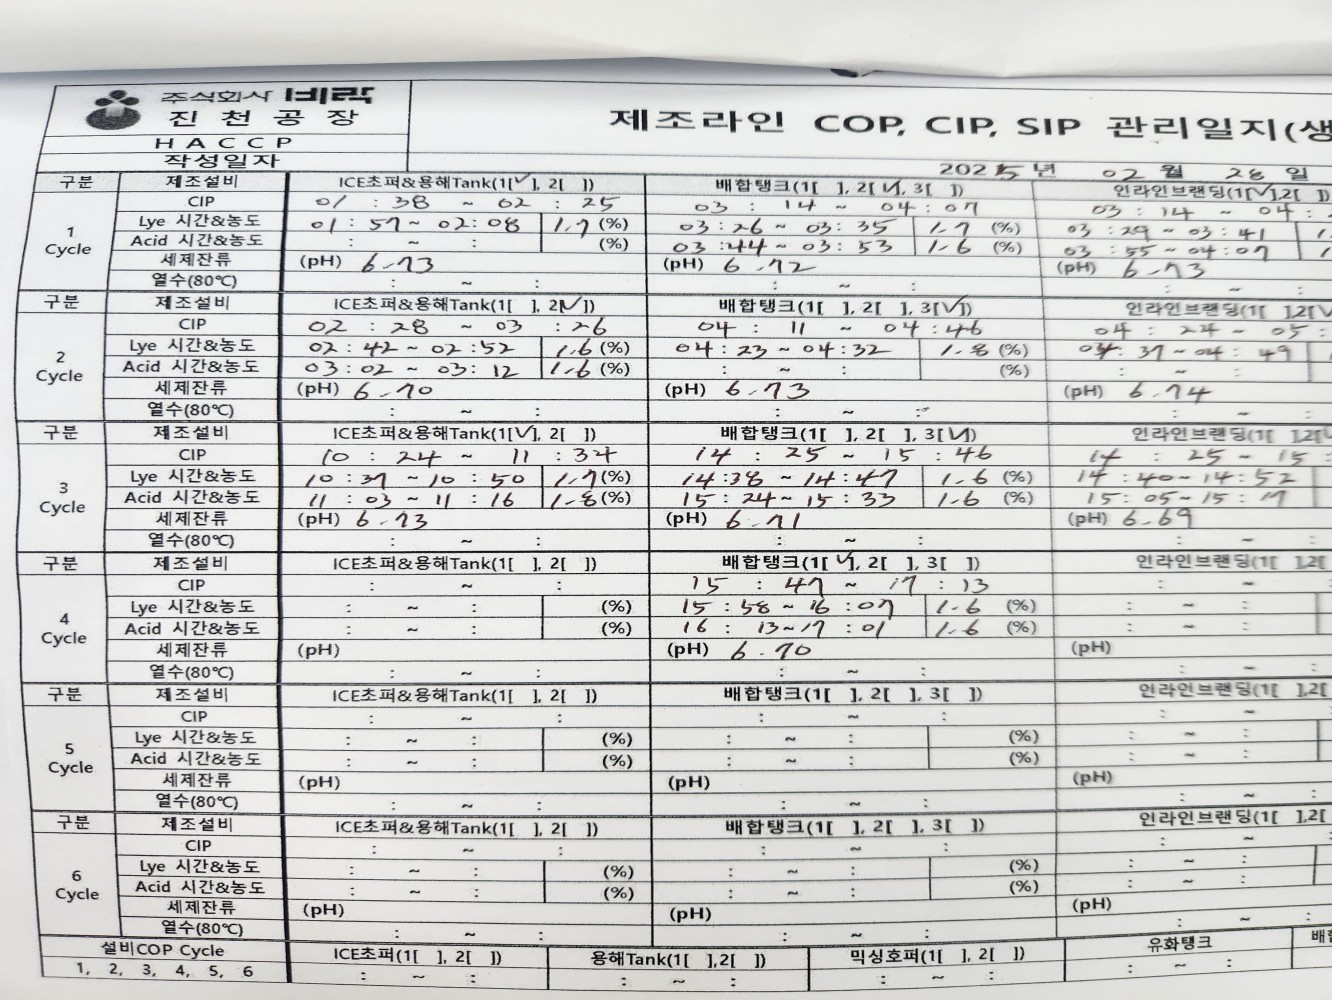 주식회사 비락
진천공장
HACCP
작성일자
제조라인 COP, CIP, SIP 관리일지(생
2025년 02월 28일
구분 제조설비 ICE초퍼&용해Tank(1[✓], 2[ ]) 배합탱크(1[ ], 2[✓], 3[ ]) 인라인브랜딩(1[✓],2[ ])
1 Cycle
CIP 01 : 38 ~ 02 : 25 03 : 14 ~ 04 : 07 03 : 14 ~ 04 :
Lye 시간&농도 01 : 57 ~ 02 : 08 1.7 (%) 03 : 26 ~ 03 : 35 1.7 (%) 03 : 29 ~ 03 : 41
Acid 시간&농도 : ~ : (%) 03 : 44 ~ 03 : 53 1.6 (%) 03 : 55 ~ 04 : 07
세제잔류 (pH) 6.73 (pH) 6.72 (pH) 6.73
열수(80℃) : ~ : : ~ : : ~ :
구분 제조설비 ICE초퍼&용해Tank(1[ ], 2[✓]) 배합탱크(1[ ], 2[ ], 3[✓]) 인라인브랜딩(1[ ],2[✓
2 Cycle
CIP 02 : 28 ~ 03 : 26 04 : 11 ~ 04 : 46 04 : 24 ~ 05 :
Lye 시간&농도 02 : 42 ~ 02 : 52 1.6 (%) 04 : 23 ~ 04 : 32 1.8 (%) 04 : 37 ~ 04 : 49
Acid 시간&농도 03 : 02 ~ 03 : 12 1.6 (%) : ~ : (%) : ~ :
세제잔류 (pH) 6.70 (pH) 6.73 (pH) 6.74
열수(80℃) : ~ : : ~ : : ~ :
구분 제조설비 ICE초퍼&용해Tank(1[✓], 2[ ]) 배합탱크(1[ ], 2[ ], 3[✓]) 인라인브랜딩(1[ ],2[✓
3 Cycle
CIP 10 : 24 ~ 11 : 34 14 : 25 ~ 15 : 46 14 : 25 ~ 15 :
Lye 시간&농도 10 : 37 ~ 10 : 50 1.7 (%) 14 : 38 ~ 14 : 47 1.6 (%) 14 : 40 ~ 14 : 52
Acid 시간&농도 11 : 03 ~ 11 : 16 1.8 (%) 15 : 24 ~ 15 : 33 1.6 (%) 15 : 05 ~ 15 : 17
세제잔류 (pH) 6.73 (pH) 6.71 (pH) 6.69
열수(80℃) : ~ : : ~ : : ~ :
구분 제조설비 ICE초퍼&용해Tank(1[ ], 2[ ]) 배합탱크(1[✓], 2[ ], 3[ ]) 인라인브랜딩(1[ ],2[
4 Cycle
CIP : ~ : 15 : 47 ~ 17 : 13 : ~
Lye 시간&농도 : ~ : (%) 15 : 58 ~ 16 : 07 1.6 (%) : ~ :
Acid 시간&농도 : ~ : (%) 16 : 13 ~ 17 : 01 1.6 (%) : ~ :
세제잔류 (pH) (pH) 6.70 (pH)
열수(80℃) : ~ : : ~ : : ~ :
구분 제조설비 ICE초퍼&용해Tank(1[ ], 2[ ]) 배합탱크(1[ ], 2[ ], 3[ ]) 인라인브랜딩(1[ ],2[
5 Cycle
CIP : ~ : : ~ : : ~
Lye 시간&농도 : ~ : (%) : ~ : (%) : ~ :
Acid 시간&농도 : ~ : (%) : ~ : (%) : ~ :
세제잔류 (pH) (pH) (pH)
열수(80℃) : ~ : : ~ : : ~ :
구분 제조설비 ICE초퍼&용해Tank(1[ ], 2[ ]) 배합탱크(1[ ], 2[ ], 3[ ]) 인라인브랜딩(1[ ],2[
6 Cycle
CIP : ~ : : ~ : : ~
Lye 시간&농도 : ~ : (%) : ~ : (%) : ~ :
Acid 시간&농도 : ~ : (%) : ~ : (%) : ~ :
세제잔류 (pH) (pH) (pH)
열수(80℃) : ~ : : ~ : : ~ :
설비COP Cycle ICE초퍼(1[ ], 2[ ]) 용해Tank(1[ ],2[ ]) 믹싱호퍼(1[ ], 2[ ]) 유화탱크 배합
1, 2, 3, 4, 5, 6 : ~ : : ~ : : ~ : : ~ :